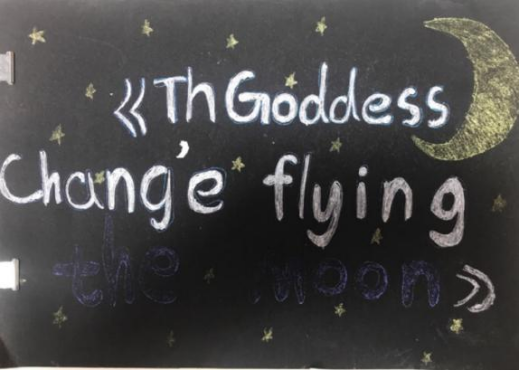 《Th Goddess
Chang'e flying
the moon》